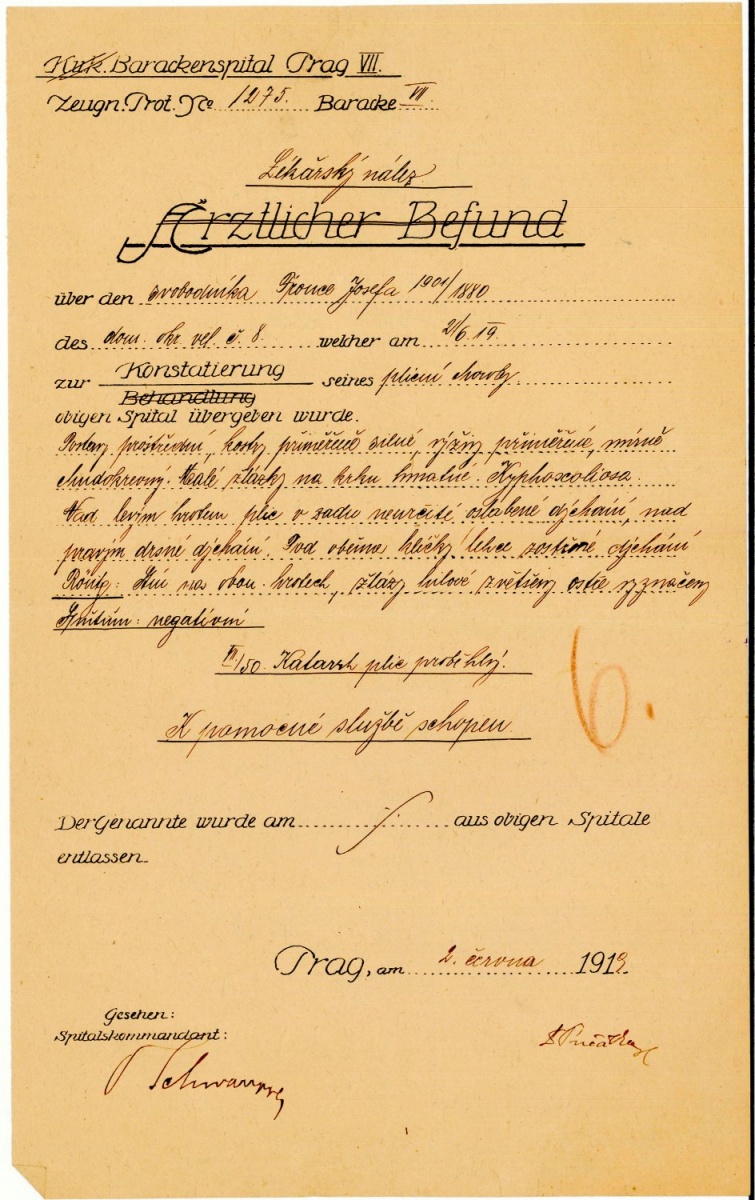 K.u.k. Barackenspital Prag VII.
Zeugn. Prot. No 1275. Baracke VII
Lékářský nález
Ärztlicher Befund
über den svobodníka Josefa 1901/1880
des dom. okr. vel. č. 8. welcher am 2/6.19.
zur Konstatierung
Behandlung
seines plicní choroby
obigen Spital übergeben wurde.
Postavy prostřední, kosty přiměřeně silné, výživy přiměřené, mírně
chudokrevný. Malé žlázky na krku hmatné. Kyphoscoliosa.
Nad levým hrotem plic v zadu neurčité oslabené dýchání, nad
pravým drsné dýchání. Pod oběma klíčky lehce dýchání
Röntg: Stín na obou hrotech, žlázy hilové zvětšeny ostře vyznačeny
Sputum: negativní
VII/50. Katarrh plic proběhlý.
K pomocné službě schopen.
6.
Der Genannte wurde am aus obigen Spitale
entlassen.
Prag, am 2. června 1919.
Gesehen:
Spitalskommandant: